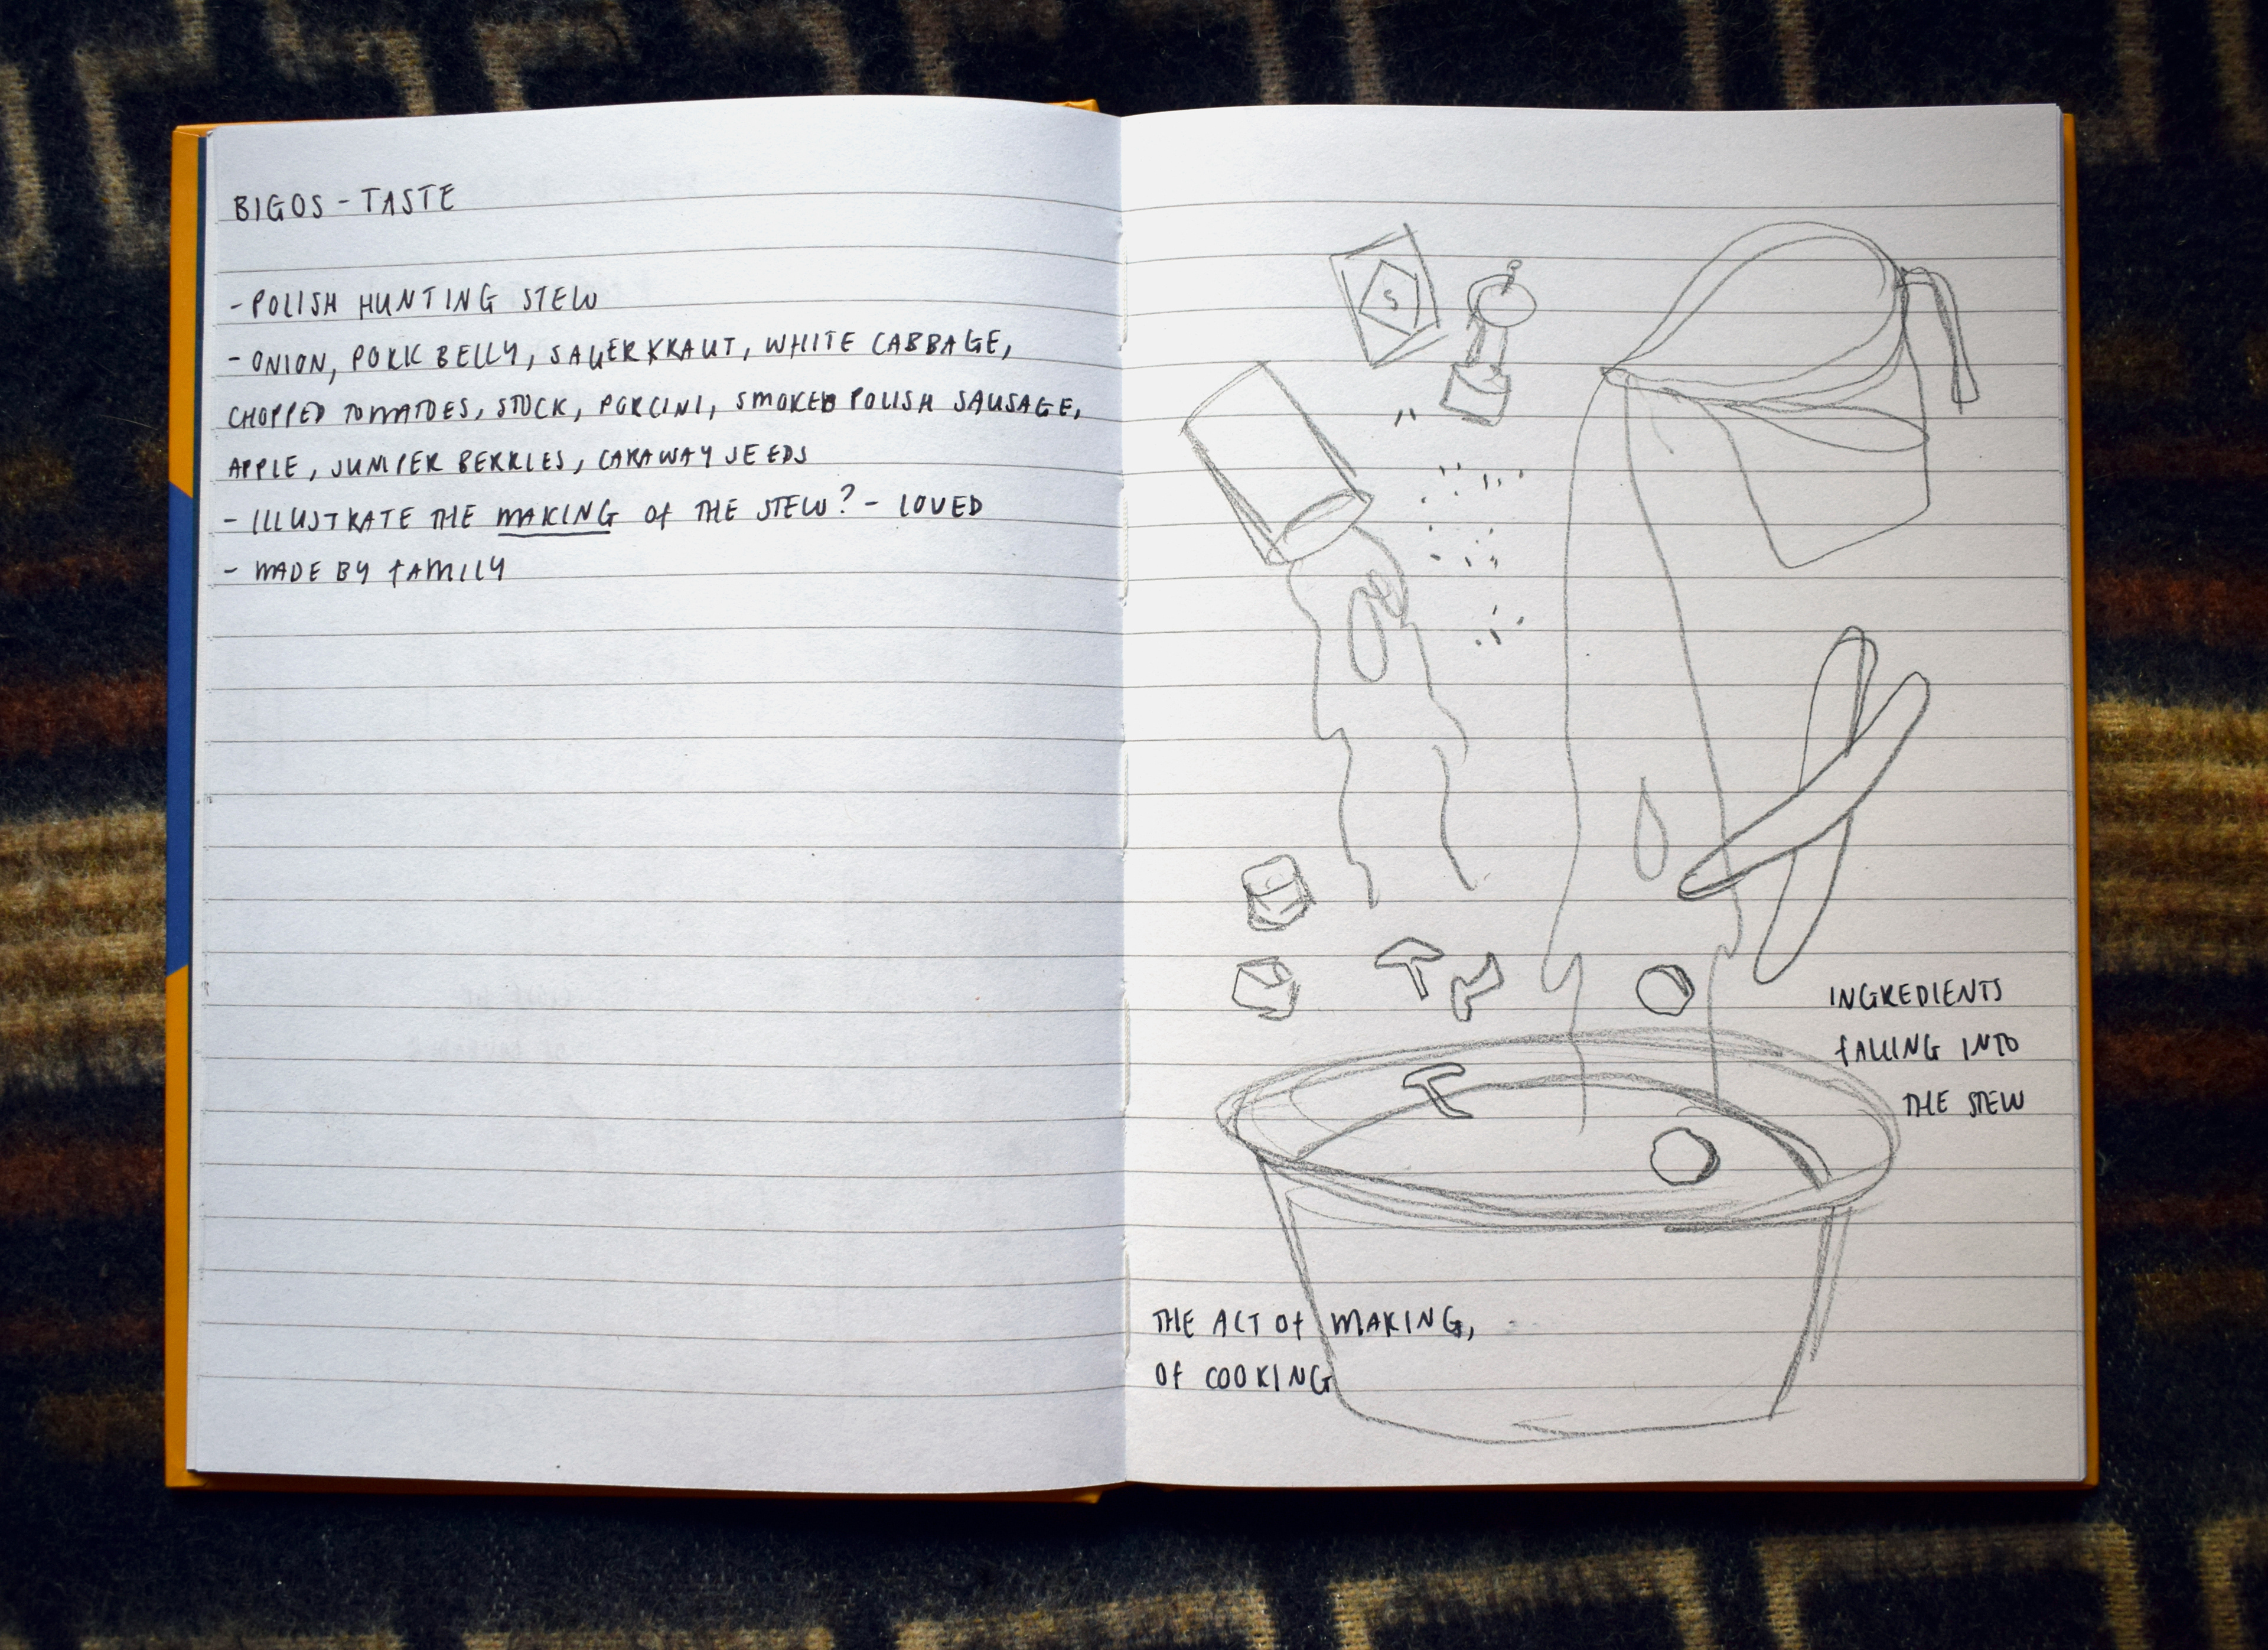 BIGOS - TASTE
- POLISH HUNTING STEW
- ONION, PORK BELLY, SAUERKRAUT, WHITE CABBAGE,
CHOPPED TOMATOES, STOCK, PORCINI, SMOKED POLISH SAUSAGE,
APPLE, JUNIPER BERRIES, CARAWAY SEEDS
- ILLUSTRATE THE MAKING OF THE STEW? - LOVED
- MADE BY FAMILY
S
INGREDIENTS
FALLING INTO
THE STEW
THE ACT OF MAKING,
OF COOKING